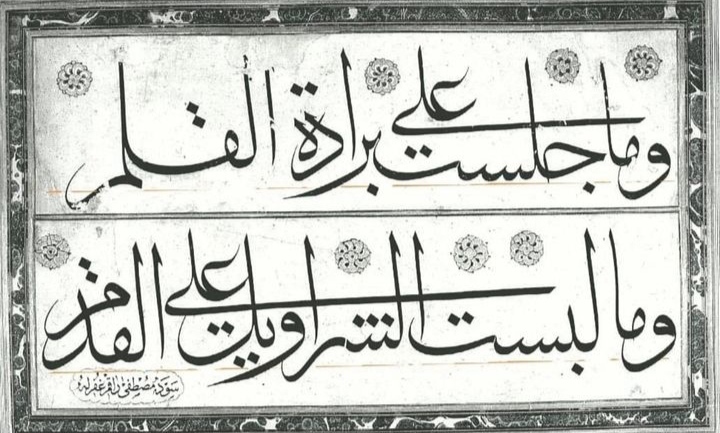 وما جلست على برادة القلم
وما لبست السراويل على القدم
سوده مصطفى راقم غفر له